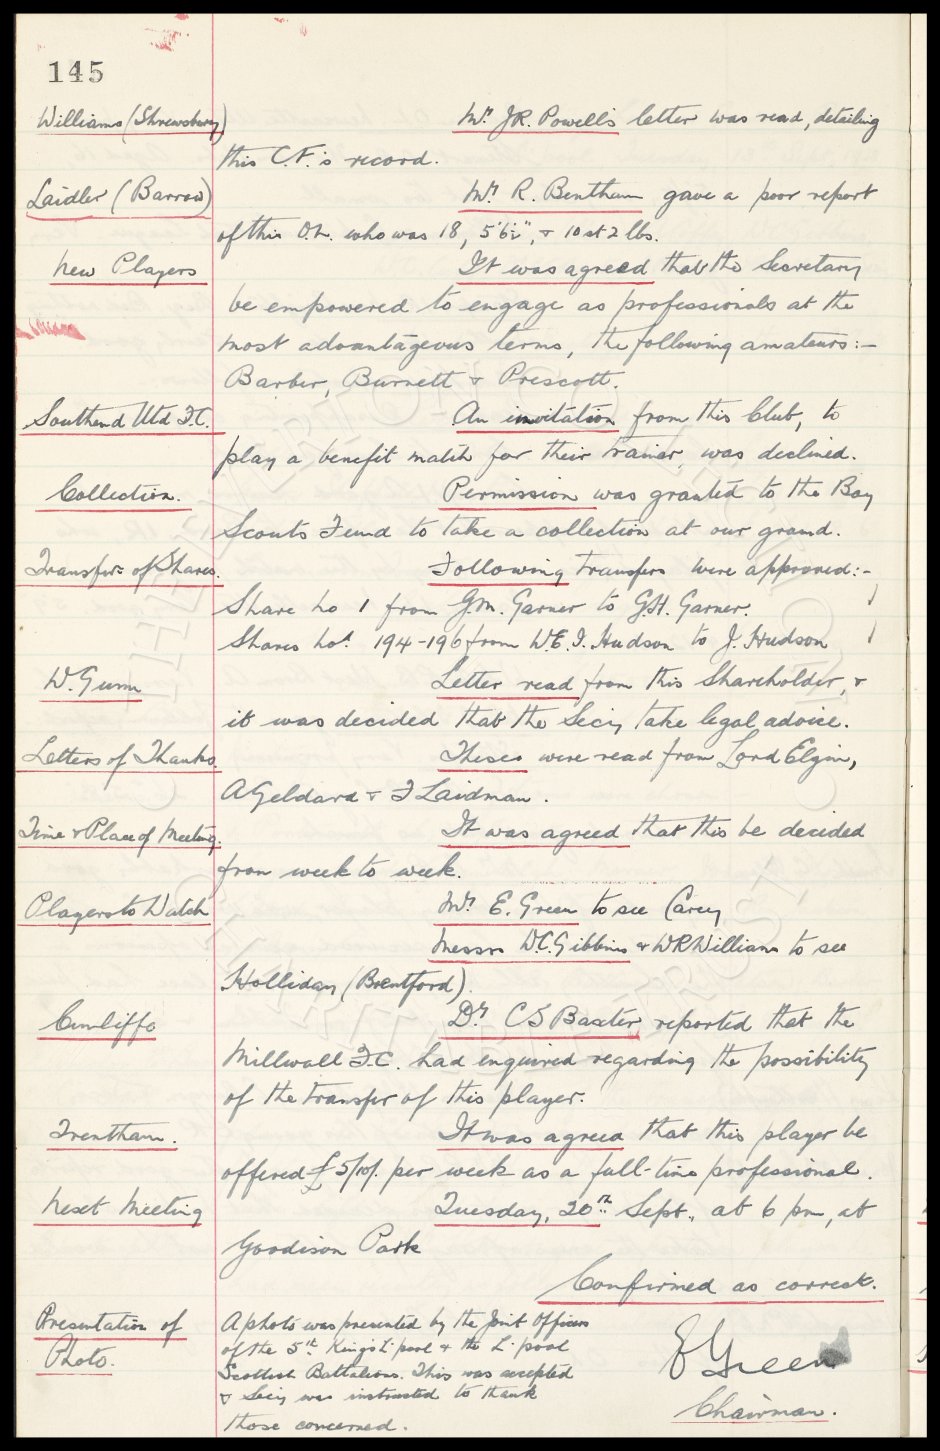 145
Williams (Shrewsbury) Mr. J.R. Powell's letter was read, detailing
this C.F.'s record.
Laidler (Barrow) Mr. R. Bentham gave a poor report
of this O.L. who was 18, 5'6½", & 10 st 2 lbs.
New Players It was agreed that the Secretary
be empowered to engage as professionals at the
most advantageous terms, the following amateurs:-
Barber, Burnett & Prescott.
Southend Utd F.C. An invitation from this Club, to
play a benefit match for their trainer, was declined.
Collection. Permission was granted to the Boy
Scouts Fund to take a collection at our ground.
Transfers of Shares. Following transfers were approved:-
Share No 1 from G.M. Garner to G.H. Garner.
Shares Nos. 194-196 from W.E.I. Hudson to J. Hudson
W. Gunn Letter read from this Shareholder, &
it was decided that the Secy take legal advice.
Letters of Thanks. Theses were read from Lord Elgin,
A Geldard & F Laidman.
Time & Place of Meeting. It was agreed that this be decided
from week to week.
Players to Watch Mr. E. Green to see Carey
Messrs W.C. Gibbins & W R Williams to see
Holliday (Brentford).
Cunliffe Dr. C S Baxter reported that the
Millwall F.C. had enquired regarding the possibility
of the transfer of this player.
Trentham. It was agreed that this player be
offered £5/10/. per week as a full-time professional.
Next Meeting Tuesday, 20th Sept., at 6 pm, at
Goodison Park
Confirmed as correct.
Presentation of A photo was presented by the Joint Officers
Photo. of the 5th King's L'pool & the L'pool
Scottish Battalions. This was accepted
& Secy was instructed to thank
those concerned.
E Green
Chairman.